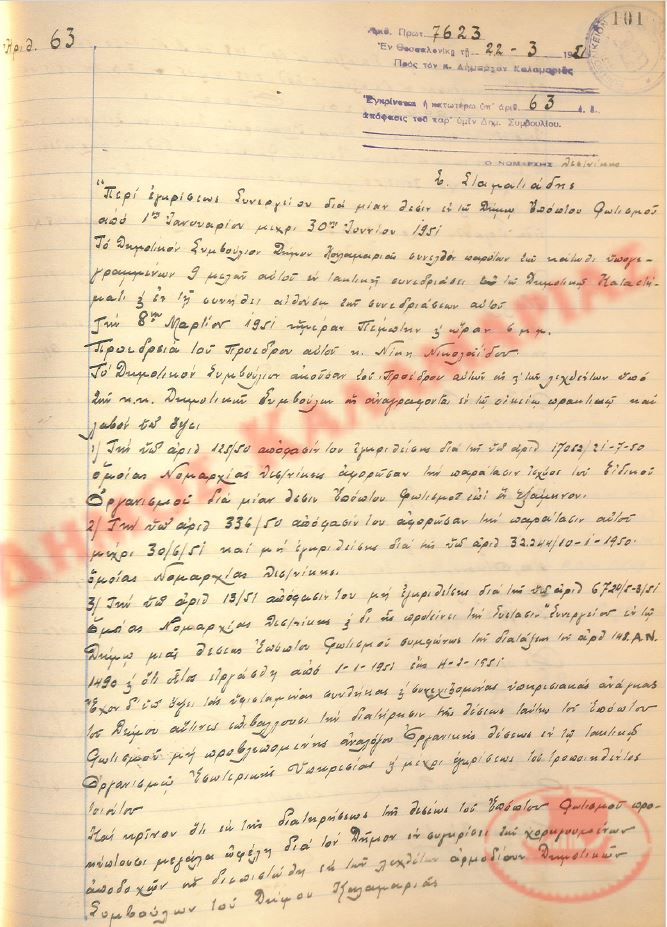 101
Αριθ. 63
Αριθ. Πρωτ. 7623
Ἐν Θεσσαλονίκῃ τῇ 22-3-1951
Πρὸς τὸν κ. Δήμαρχον Καλαμαριᾶς
Ἐγκρίνεται ἡ κατωτέρω ὑπ' ἀριθ. 63
ἀπόφασις τοῦ παρ' ὑμῖν Δημ. Συμβουλίου.
Ὁ ΝΟΜΑΡΧΗΣ Θεσ/νίκης
Σ. Σταματιάδης
"Περί ἐγκρίσεως Συνεργείου διά μίαν θέσιν ἐν τῷ Δήμῳ Ἐπόπτου Φωτισμοῦ
ἀπό 1ης Ἰανουαρίου μέχρι 30ης Ἰουνίου 1951
Τό Δημοτικόν Συμβούλιον Δήμου Καλαμαριᾶς συνελθόν παρόντων τῶν κάτωθι ὑπογε-
γραμμένων 9 μελῶν αὐτοῦ ἐν τακτικῇ συνεδριάσει τῷ Δημοτικῷ Καταστή-
ματι & ἐν τῇ συνήθει αἰθούσῃ τῶν συνεδριάσεων αὐτοῦ
Τήν 8ην Μαρτίου 1951 ἡμέραν Πέμπτην & ὥραν 6 μ.μ.
Προεδρείᾳ τοῦ Προέδρου αὐτοῦ κ. Νίκη Νικολαΐδου.
Τό Δημοτικόν Συμβούλιον ἀκοῦσαν τοῦ Προέδρου αὐτοῦ ὡς & τῶν λεχθέντων ὑπό
τῶν κ.κ. Δημοτικῶν Συμβούλων ὡς ἀναγράφονται ἐν τῷ οἰκείῳ πρακτικῷ καί
λαβόν ὑπ' ὄψει
1) Τήν ὑπ' ἀριθ 125/50 ἀπόφασίν του ἐγκριθεῖσης διά τῆς ὑπ' ἀριθ 17052/21-7-50
ὁμοίας Νομαρχίας Θεσ/νίκης ἀφορῶσαν τήν παράτασιν ἰσχύος τοῦ Εἰδικοῦ
Ὀργανισμοῦ διά μίαν θέσιν Ἐπόπτου Φωτισμοῦ ἐπί ἓν ἑξάμηνον.
2) Τήν ὑπ' ἀριθ 336/50 ἀπόφασίν του ἀφορῶσαν τήν παράτασιν αὐτοῦ
μέχρι 30/6/51 καί μή ἐγκριθεῖσης διά τῆς ὑπ' ἀριθ 32.244/10-1-1950
ὁμοίας Νομαρχίας Θεσ/νίκης.
3) Τήν ὑπ' ἀριθ 13/51 ἀπόφασίν του μή ἐγκριθεῖσης διά τῆς ὑπ' ἀριθ 6720/5-3/51
ὁμοίας Νομαρχίας Θεσ/νίκης & δι' ἧς προτείνει τήν σύστασιν Συνεργείου ἐν τῷ
Δήμῳ μιᾶς θέσεως Ἐπόπτου Φωτισμοῦ συμφώνως τήν διάταξιν τοῦ ἀρθ 148 Α.Ν.
1490 & ὅτι οὗτος εἰργάσθη ἀπό 1-1-1951 ἕως
Ἔχον δ' ὑπ' ὄψει τάς ὑφισταμένας συνθήκας & συνεχιζομένας ὑπηρεσιακάς ἀνάγκας
τοῦ Δήμου αἵτινες ἐπιβάλλουσι τήν διατήρησιν τῆς θέσεως ταύτης τοῦ Ἐπόπτου
Φωτισμοῦ μή προβλεπομένης ἀναλόγου Ὀργανικῆς θέσεως ἐν τῷ τακτικῷ
Ὀργανισμῷ Ἐσωτερικῆς Ὑπηρεσίας & μέχρι ἐγκρίσεως τοῦ τροποποιηθέντος
τοιούτου
Καί κρῖνον ὅτι ἐκ τῆς διατηρήσεως τῆς θέσεως τοῦ Ἐπόπτου Φωτισμοῦ προ-
κύπτουσι μεγάλα ὀφέλη διά τόν Δῆμον ἐν συγκρίσει τῶν χορηγουμένων
ἀποδοχῶν ὡς διεπιστώθη ἐκ τῶν λεχθέντων ἁρμοδίων Δημοτικῶν
Συμβούλων τοῦ Δήμου Καλαμαριᾶς
ΔΗΜΟΣ ΚΑΛΑΜΑΡΙΑΣ